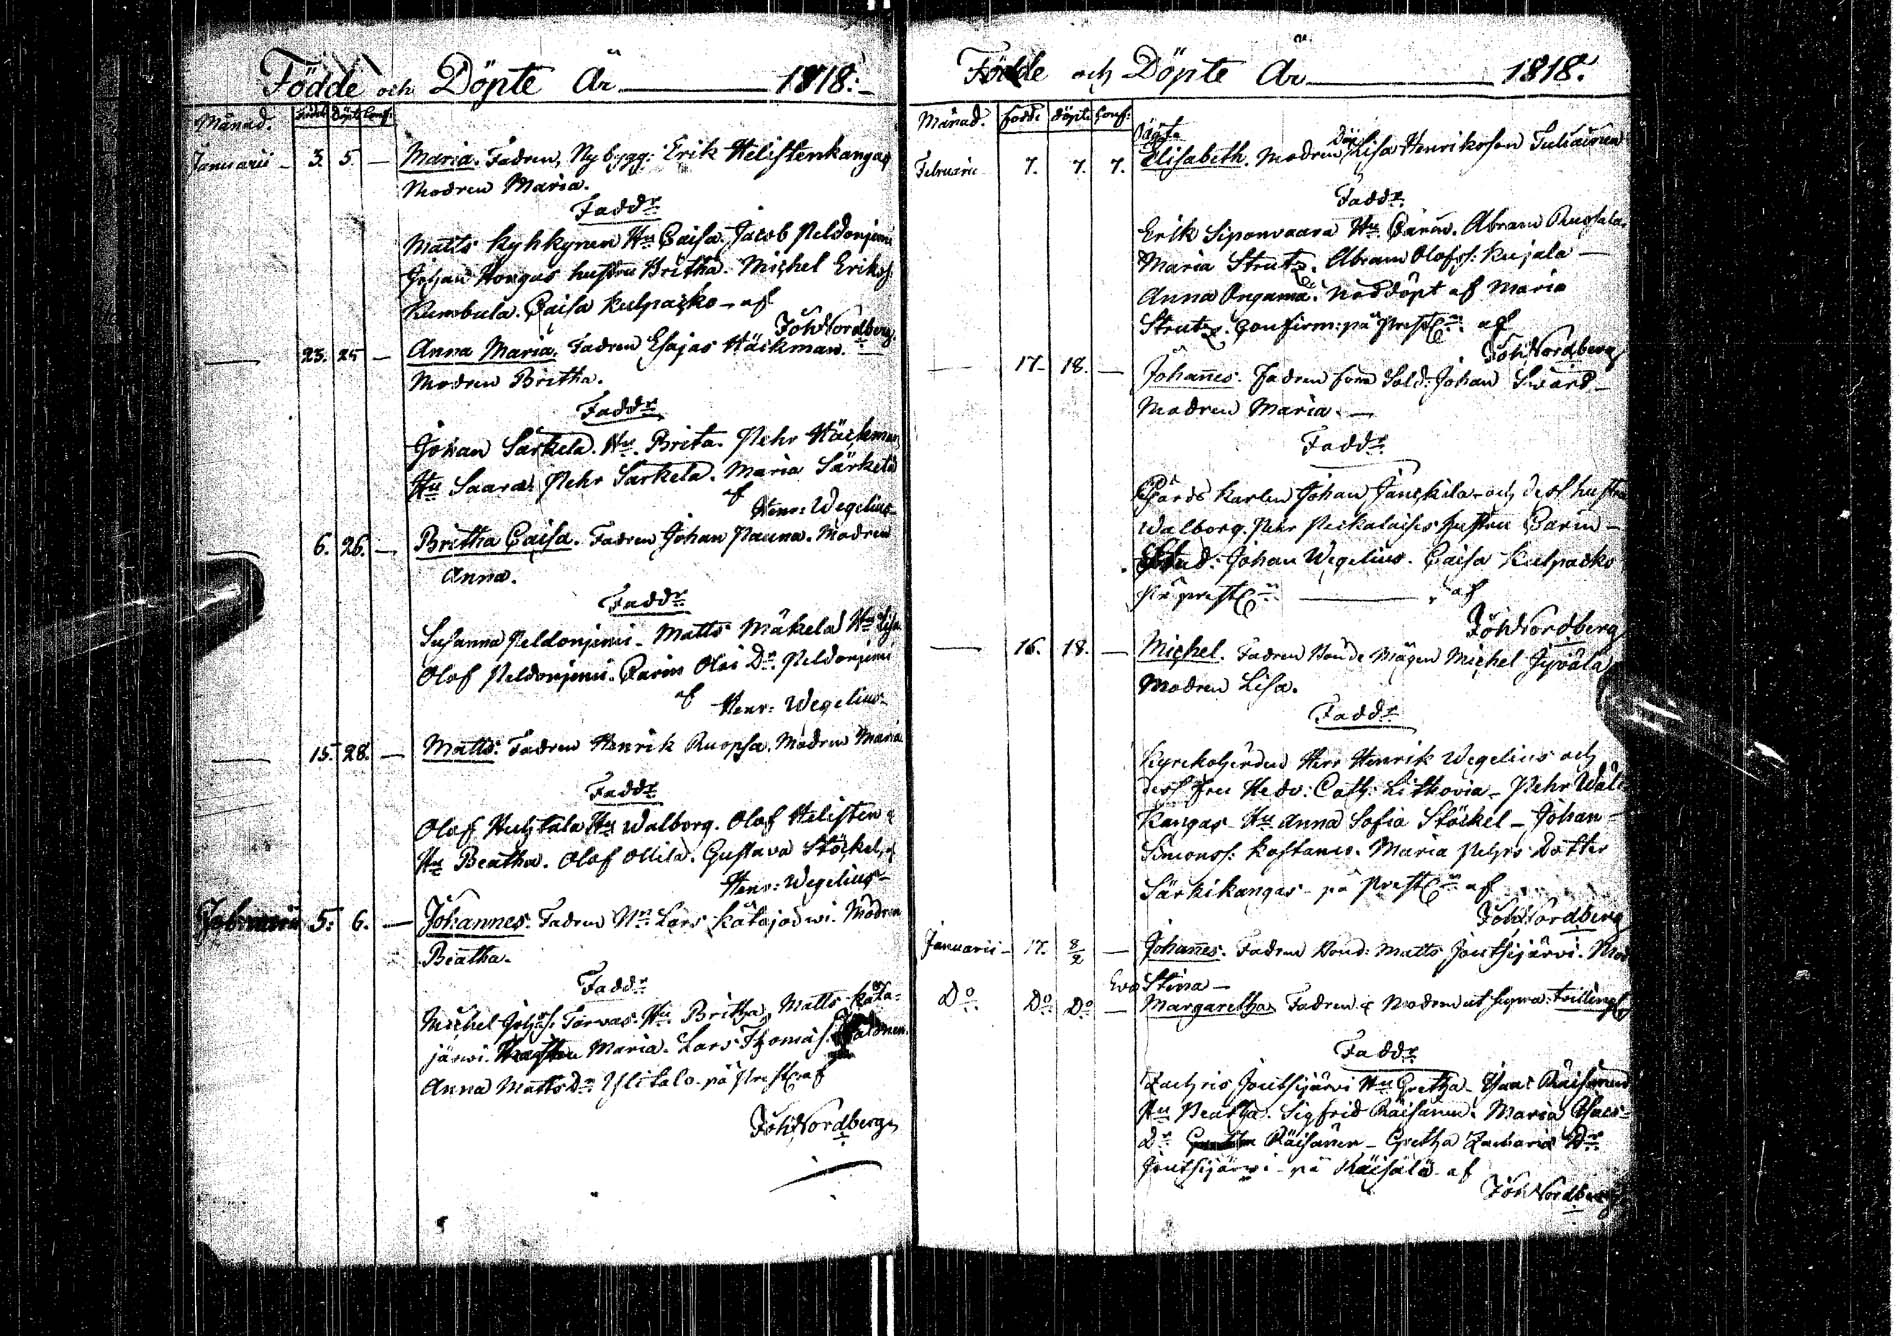 Födde och Döpte År 1818.
Månad. födde Döpte Conf:
Januarii 3. 5. Maria. Fadren, Nybygg: Erik Helistenkangas
Modren Maria.
Faddr
Matts Kyhkynen Hu Caisa. Jacob Peldoniemi
Johan Hongas hustru Britha. Michel Eriks:
Kumbula. Caisa Kulpacko af
Joh Nordberg.
23. 25 Anna Maria. Fadren Esajas Häckman.
Modren Britha.
Faddr
Johan Särkelä. Hu. Brita. Pehr Häckman
Hu Saara. Pehr Särkelä. Maria Särkelä
af
Henr: Wegelius
6. 26. Britha Caisa. Fadren Johan Pauna. Modren
Anna.
Faddr
Susanna Peldoniemi. Matts Mäkelä Hu Lisa
Olof Peldoniemi. Carin Olai Dr Peldoniemi
af
Henr: Wegelius
15. 28. Matts. Fadren Henrik Ruopsa. Modren Maria
Faddr
Olof Huhtala Hu Walborg. Olof Helisten
Hu Beatha. Olof Ollila. Gustava Stöckel, af
Henr: Wegelius
Februarii 5. 6. Johannes. Fadren Lars Katajärwi. Modren
Beatha.
Faddr
Michel Johs: Torvas Hu Britha, Matts Kata-
järwi. Maria. Lars Thomas:
Anna Matts Dr Ylitalo på Prest: af
Joh Nordberg
Födde och Döpte År 1818.
Månad. födde döpte Conf:
Oägta
Februarii 7. 7. 7. Elisabeth. Modren Lisa Henriksson
Faddr
Erik Siponvaara Hu Carin. Abram Ruopsala
Maria Strutz. Abram Olofs: Kujala
Anna Ongama. Nöddöpt af Maria
Strutz. Confirm: på Prest af
Joh Nordberg
17 18. Johannes. Fadren Sold: Johan Swärd
Modren Maria.
Faddr
Gårds Karlen Johan Jänckilä och dess hustru
Walborg. Pehr hustru Carin
Stud: Johan Wegelius. Caisa Kulpacko
på prest af
Joh Nordberg
16. 18. Michel. Fadren Bonde Mågen Michel Jyvälä
Modren Lisa.
Faddr
Kyrckoherden Herr Henrik Wegelius och
dess fru Hedv: Cath: Lithovia. Pehr Wäl-
kangas Hu Anna Sofia Stöckel Johan
Simons: Kostamo. Maria Pehrs Dotter
Särkikangas på Prest af
Joh Nordberg
Januarii 17. 8/2 Johannes. Fadren Bond: Matts Joutsijärvi. Mod
Eva Stina
Do Do Do Margaretha Fadren & Modren ut supra: tvillingar
Faddr
Zachris Joutsijärvi Hu Gretha. Isac Räisänen
Hu Beatha. Sigfrid Räisänen. Maria Isacs
Dr Räisänen Gretha Zacharie Dr
Joutsijärvi på Räisälä af
Joh Nordberg